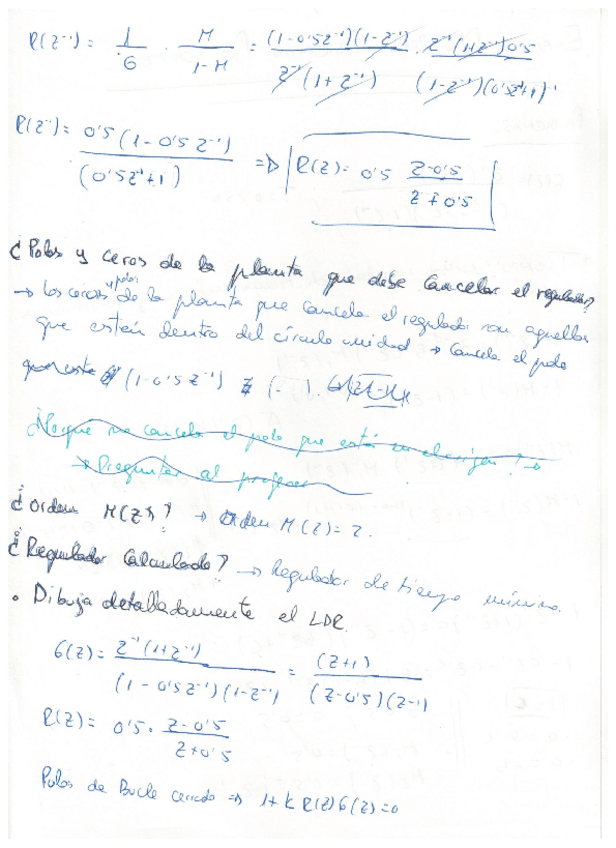 R(z⁻¹) = 1/G · M/(1-M) = (1-0'5z⁻¹)(1-z⁻¹)/(z⁻¹(1+z⁻¹)) · z⁻¹(1+z⁻¹)0'5/((1-z⁻¹)(0'5z⁻¹+1))
R(z⁻¹) = 0'5(1-0'5z⁻¹)/(0'5z⁻¹+1) => R(z) = 0'5 (z-0'5)/(z+0'5)
¿Polos y ceros de la planta que debe cancelar el regulador?
→ Los ceros y polos de la planta que cancela el regulador son aquellos
que estén dentro del círculo unidad → Cancela el polo
(1-0'5z⁻¹)
no cancela el polo que está en
→ Preguntar al profesor
¿Orden M(z)? → Orden M(z) = 2.
¿Regulador Calculado? → Regulador de tiempo mínimo.
• Dibuja detalladamente el LDR.
G(z) = z⁻¹(1+z⁻¹)/((1-0'5z⁻¹)(1-z⁻¹)) = (z+1)/((z-0'5)(z-1))
R(z) = 0'5 · (z-0'5)/(z+0'5)
Polos de Bucle cerrado => 1+k R(z)G(z)=0